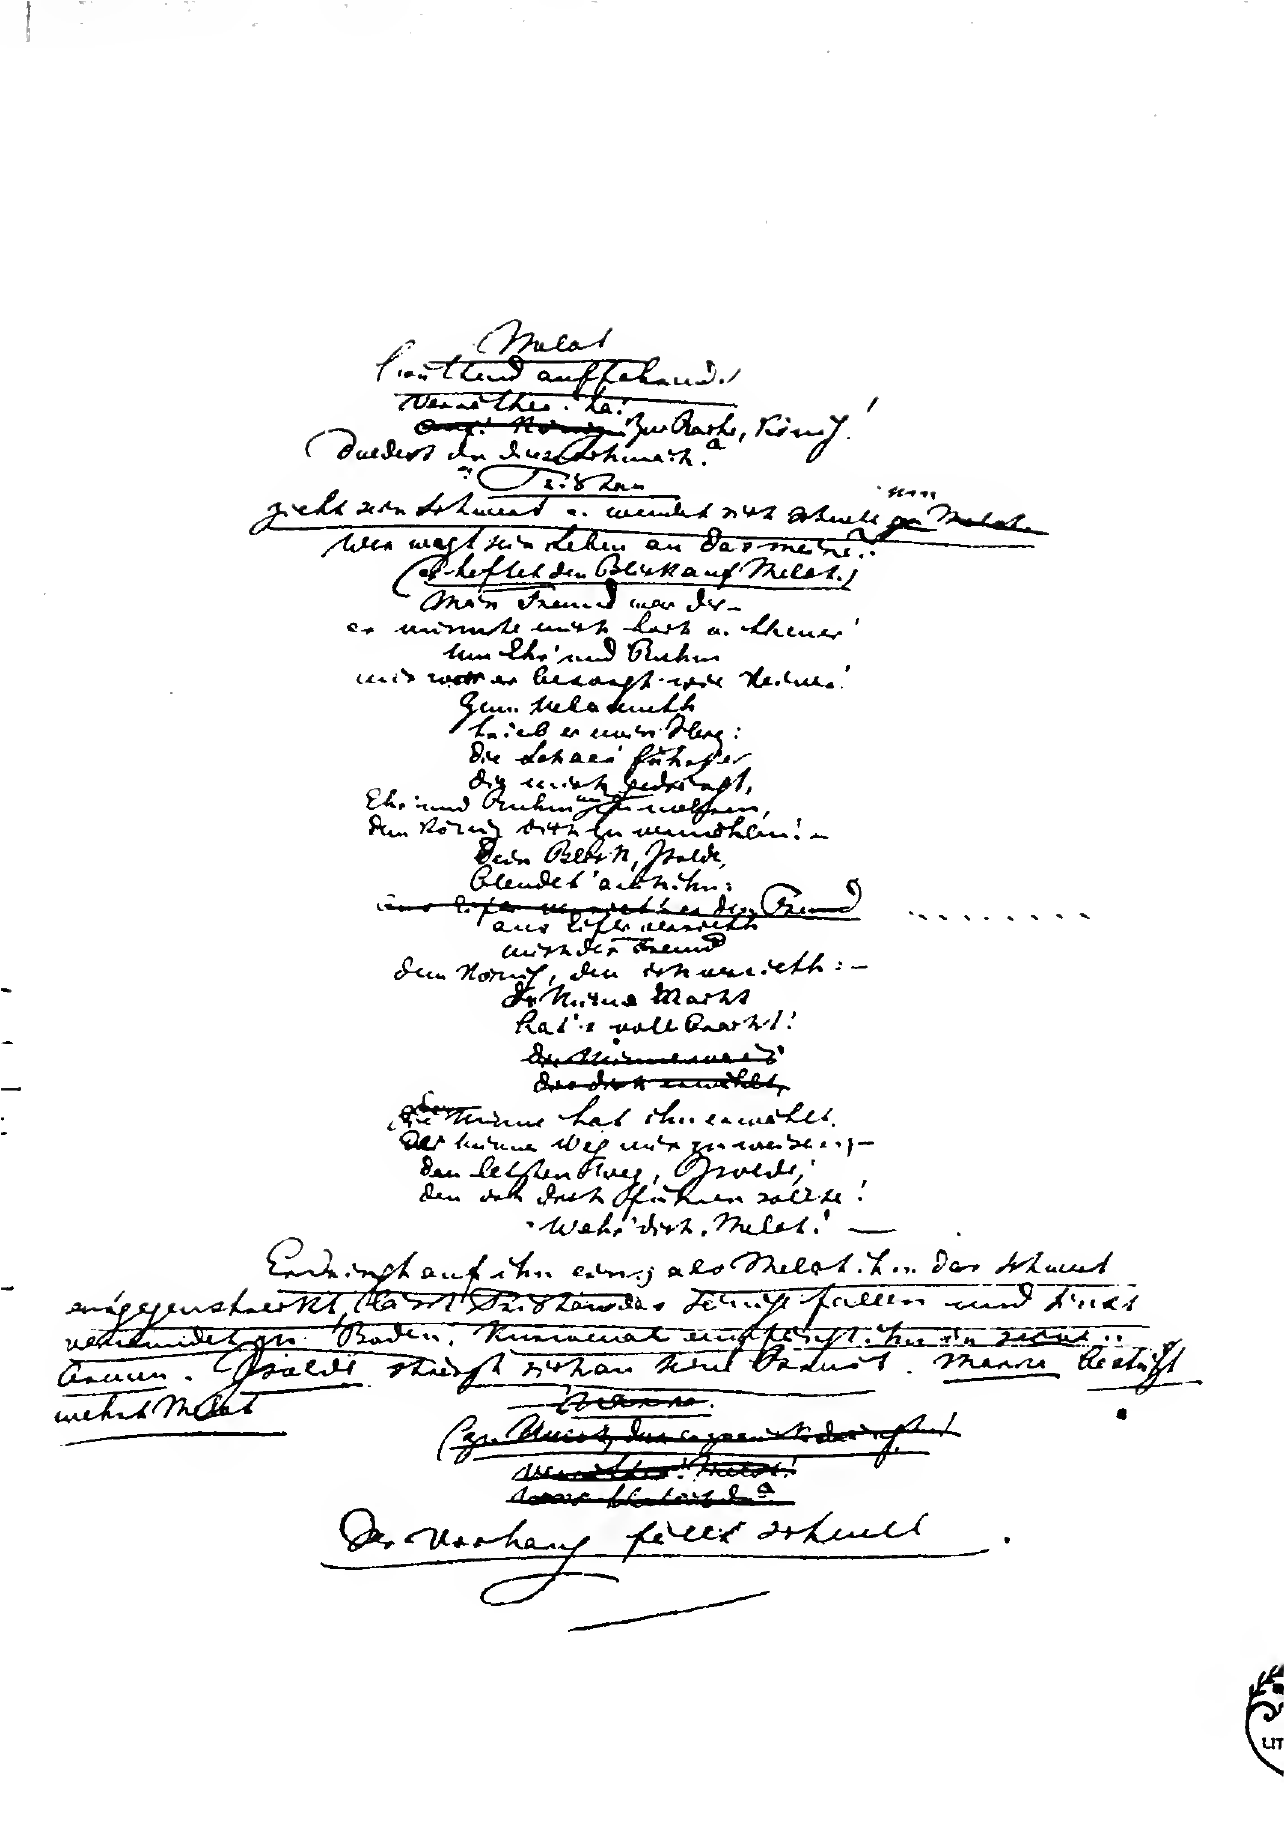 Melot
wüthend auffahrend.
Verräther! Ha!
Auf! König! Zur Rache, König!
Duldest du diese Schmach?
Tristan
zieht sein Schwert u. wendet sich schnell um
Wer wagt sein Leben an das meine?
(er heftet den Blick auf Melot.)
Mein Freund war der –
er minnte mich hoch u. theuer!
Um Ehr' und Ruhm
mir war er besorgt wie Keiner!
Zum Uebermuth
trieb er mein Herz:
die Schaar führt' er
die mich gedrängt,
Ehr' und Ruhm mir zu mehren,
dem König dich zu vermählen! –
Dein Blick, Isolde,
blendet' auch ihn:
aus Eifer verrieth er den Freund
aus Eifer verrieth
mich der Freund
dem König, den ich verrieth: –
der Minne Macht
hat's vollbracht!
die dich erwählt,
die Minne hat ihn erwählt.
Der Minne Weg mir zu weisen, –
den letzten Weg, Isolde,
den ich dich führen sollte!
Wehr' dich, Melot! —
Er dringt auf ihn ein; als Melot ihm das Schwert
entgegenstreckt, lässt Tristan das seinige fallen und sinkt
verwundet zu Boden. Kurwenal empfängt ihn in seinen
Armen. Isolde stürzt sich an seine Brust. Marke
Melot
Marke.
Verräther! Melot!
Der Vorhang fällt schnell.
LIT